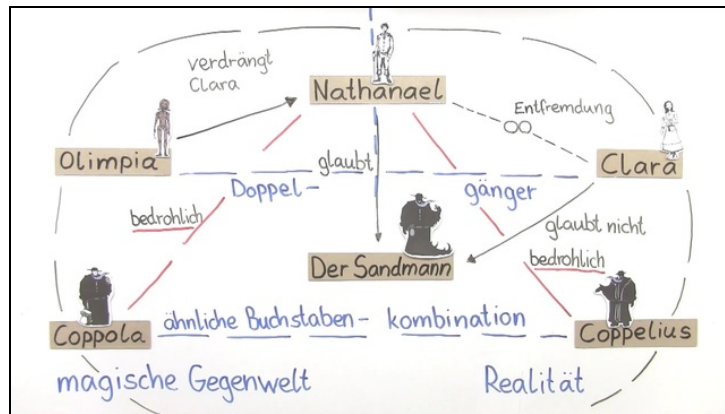 verdrängt
Clara
Nathanael
Entfremdung
Olimpia
glaubt
Clara
Doppel-
gänger
bedrohlich
glaubt nicht
Der Sandmann
bedrohlich
Coppola
ähnliche Buchstaben-
kombination
Coppelius
magische Gegenwelt
Realität